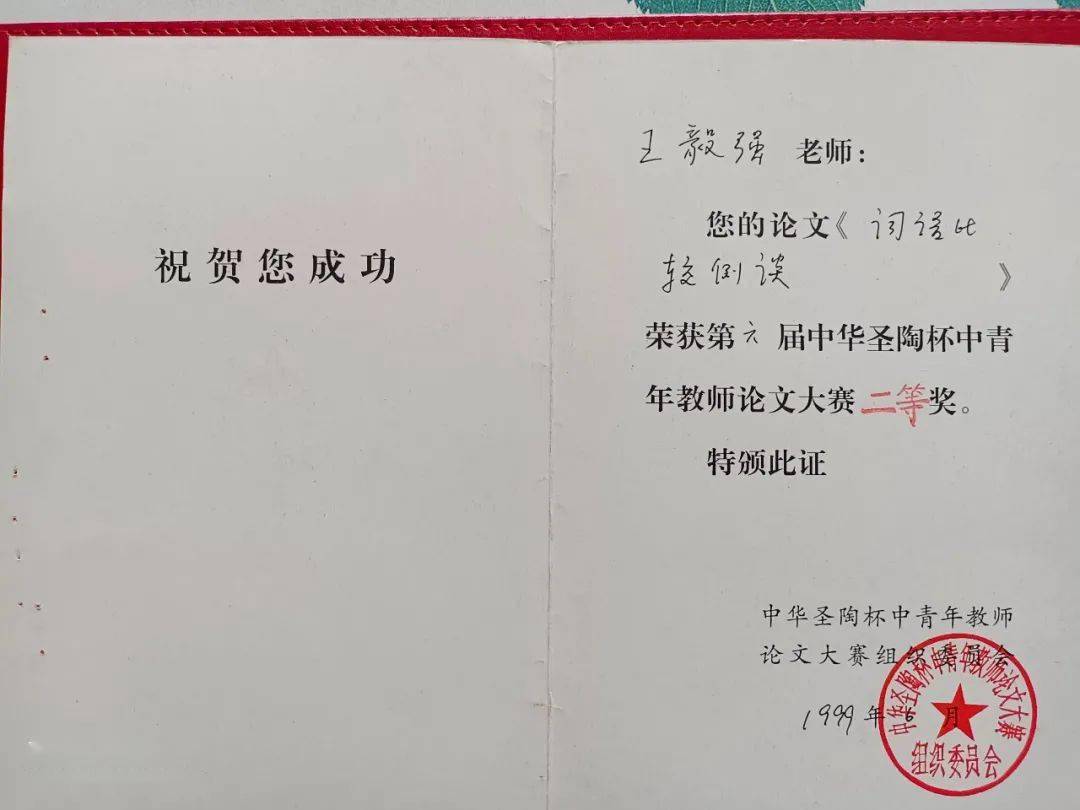 祝贺您成功
王毅强 老师：
您的论文《词语比
较例谈》
荣获第六届中华圣陶杯中青
年教师论文大赛二等奖。
特颁此证
中华圣陶杯中青年教师
论文大赛组织委员会
1999年6月
中华圣陶杯中青年教师论文大赛
组织委员会